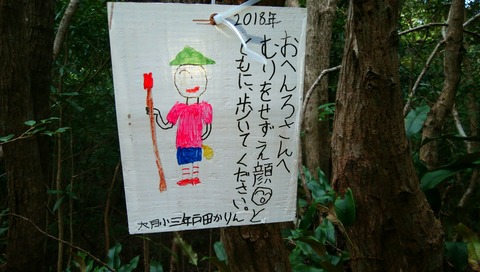 2018年
おへんろさんへ
むりをせずえ顔と
ともに、歩いてください。
大月小三年戸田かりん